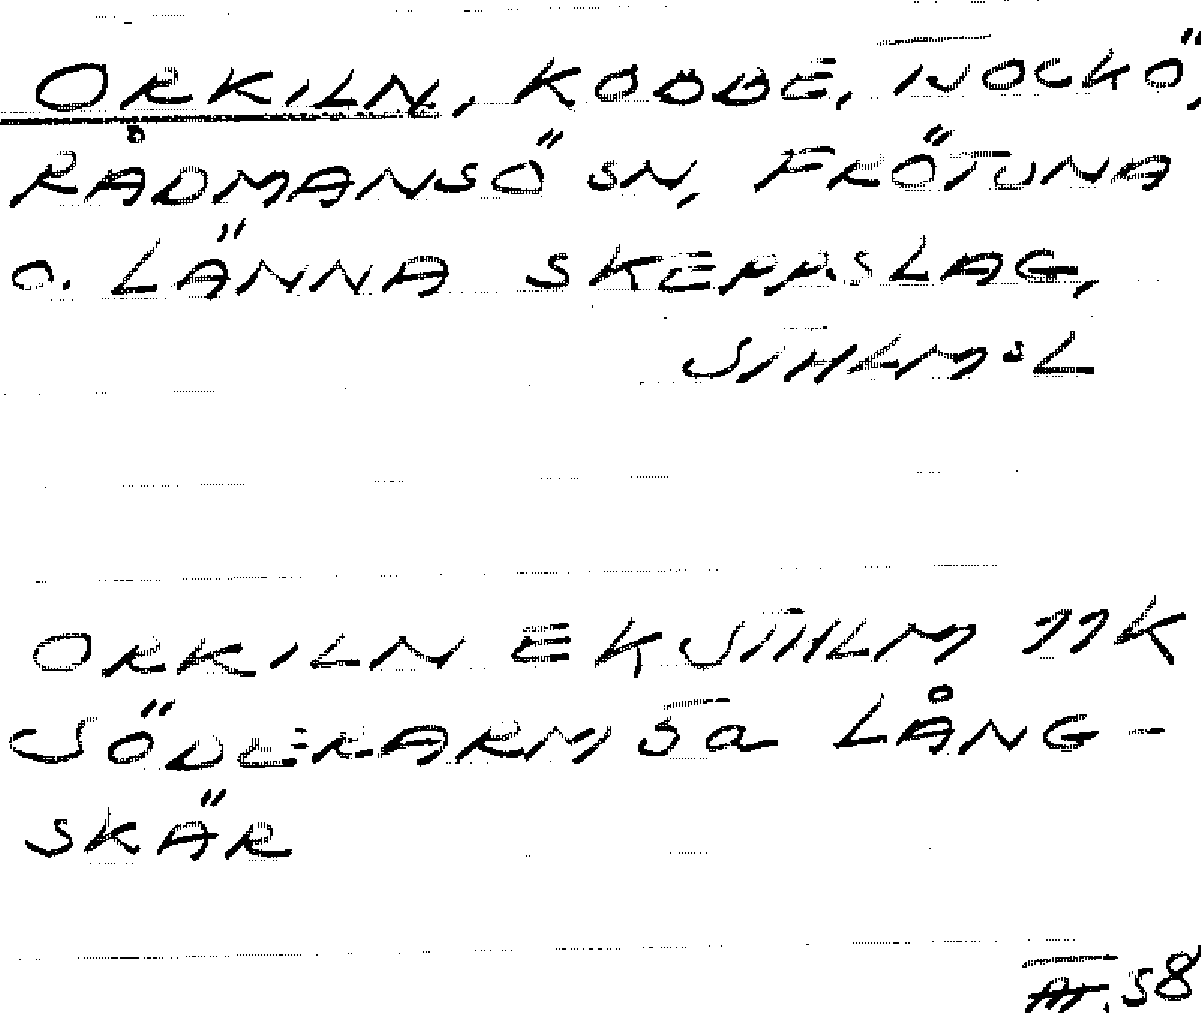 ORKILN, KOBBE, TJOCKÖ,
RÅDMANSÖ SN, FRÖTUNA
O. LÄNNA SKEPPSLAG,
STHLM:S L
ORKILN EK STHLM 11K
SÖDERARM 5a LÅNG-
SKÄR
58